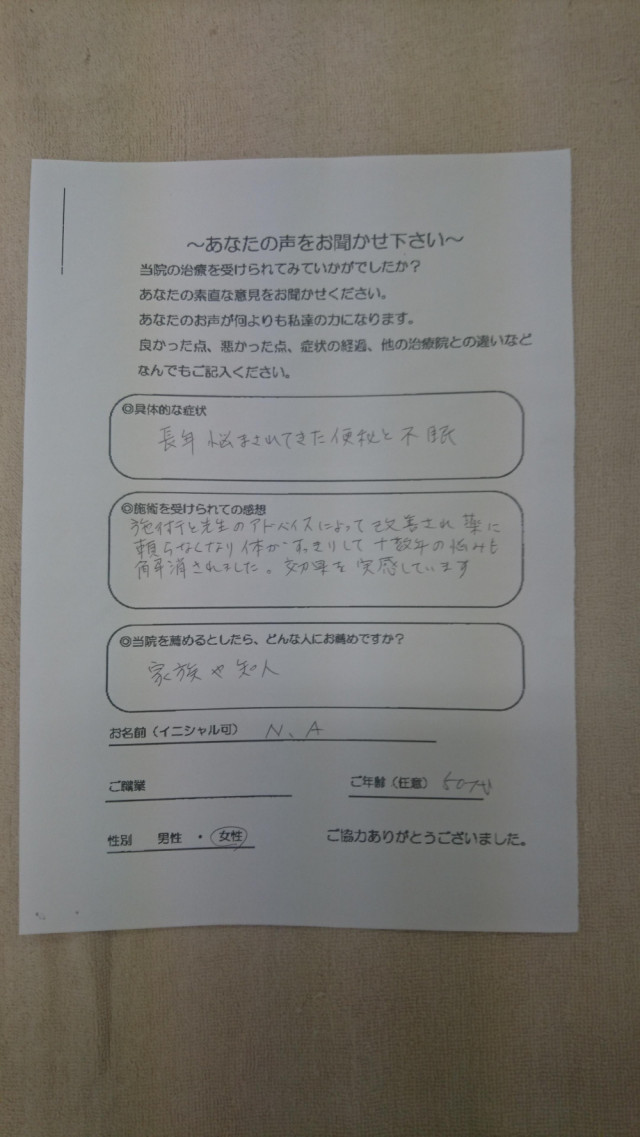 ～あなたの声をお聞かせ下さい～
当院の治療を受けられてみていかがでしたか？
あなたの素直な意見をお聞かせください。
あなたのお声が何よりも私達の力になります。
良かった点、悪かった点、症状の経過、他の治療院との違いなど
なんでもご記入ください。
◎具体的な症状
長年悩まされてきた便秘と不眠
◎施術を受けられての感想
施術と先生のアドバイスによって改善され薬に
頼らなくなり体がすっきりして十数年の悩みも
解消されました。効果を実感しています
◎当院を薦めるとしたら、どんな人にお薦めですか？
家族や知人
お名前（イニシャル可） N、A
ご職業 ご年齢（任意） 50代
性別 男性 ・ 女性 ご協力ありがとうございました。